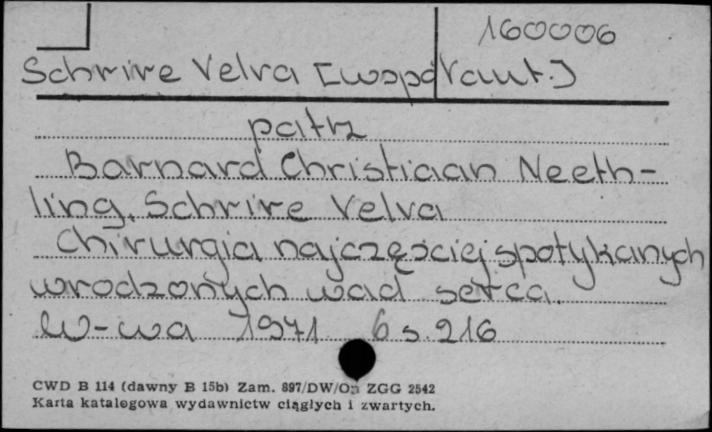 160006
Schrire Velva [współaut.]
patrz
Barnard Christiaan Neeth-
ling, Schrire Velva
Chirurgia najczęściej spotykanych
wrodzonych wad serca.
W-wa 1971 6 s. 216
CWD B 114 (dawny B 15b) Zam. 897/DW/Op ZGG 2542
Karta katalogowa wydawnictw ciągłych i zwartych.